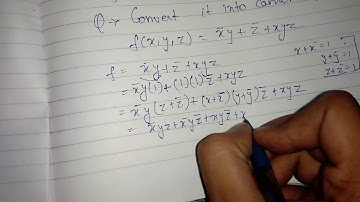 Q → Convert it into
f(x,y,z) = x̄y + z̄ + xyz
x+x̄ = 1
y+ȳ = 1
z+z̄ = 1
f = x̄y + z̄ + xyz
= x̄y(1) + (1)(1)z̄ + xyz
= x̄y(z+z̄) + (x+x̄)(y+ȳ)z̄ + xyz
= x̄yz + x̄yz̄ + xyz̄ + x